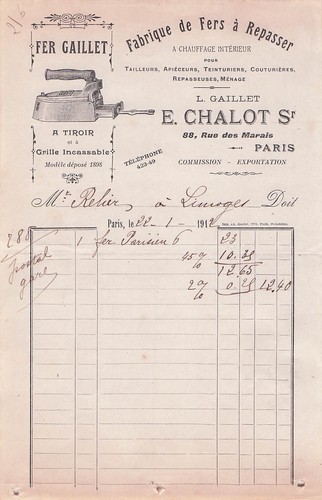 216
FER GAILLET
A TIROIR
et à
Grille Incassable
Modèle déposé 1898
Fabrique de Fers à Repasser
A CHAUFFAGE INTÉRIEUR
POUR
TAILLEURS, APIÉCEURS, TEINTURIERS, COUTURIÈRES,
REPASSEUSES, MÉNAGE
L. GAILLET
E. CHALOT Sr
88, Rue des Marais
PARIS
TÉLÉPHONE
423-49
COMMISSION - EXPORTATION
Mr Relier à Limoges Doit
Paris, le 22 - 1 - 1912
280
postal
gare
1 fer Parisien 6 23
45 % 10.35
12 65
2 % 0.25 12.40